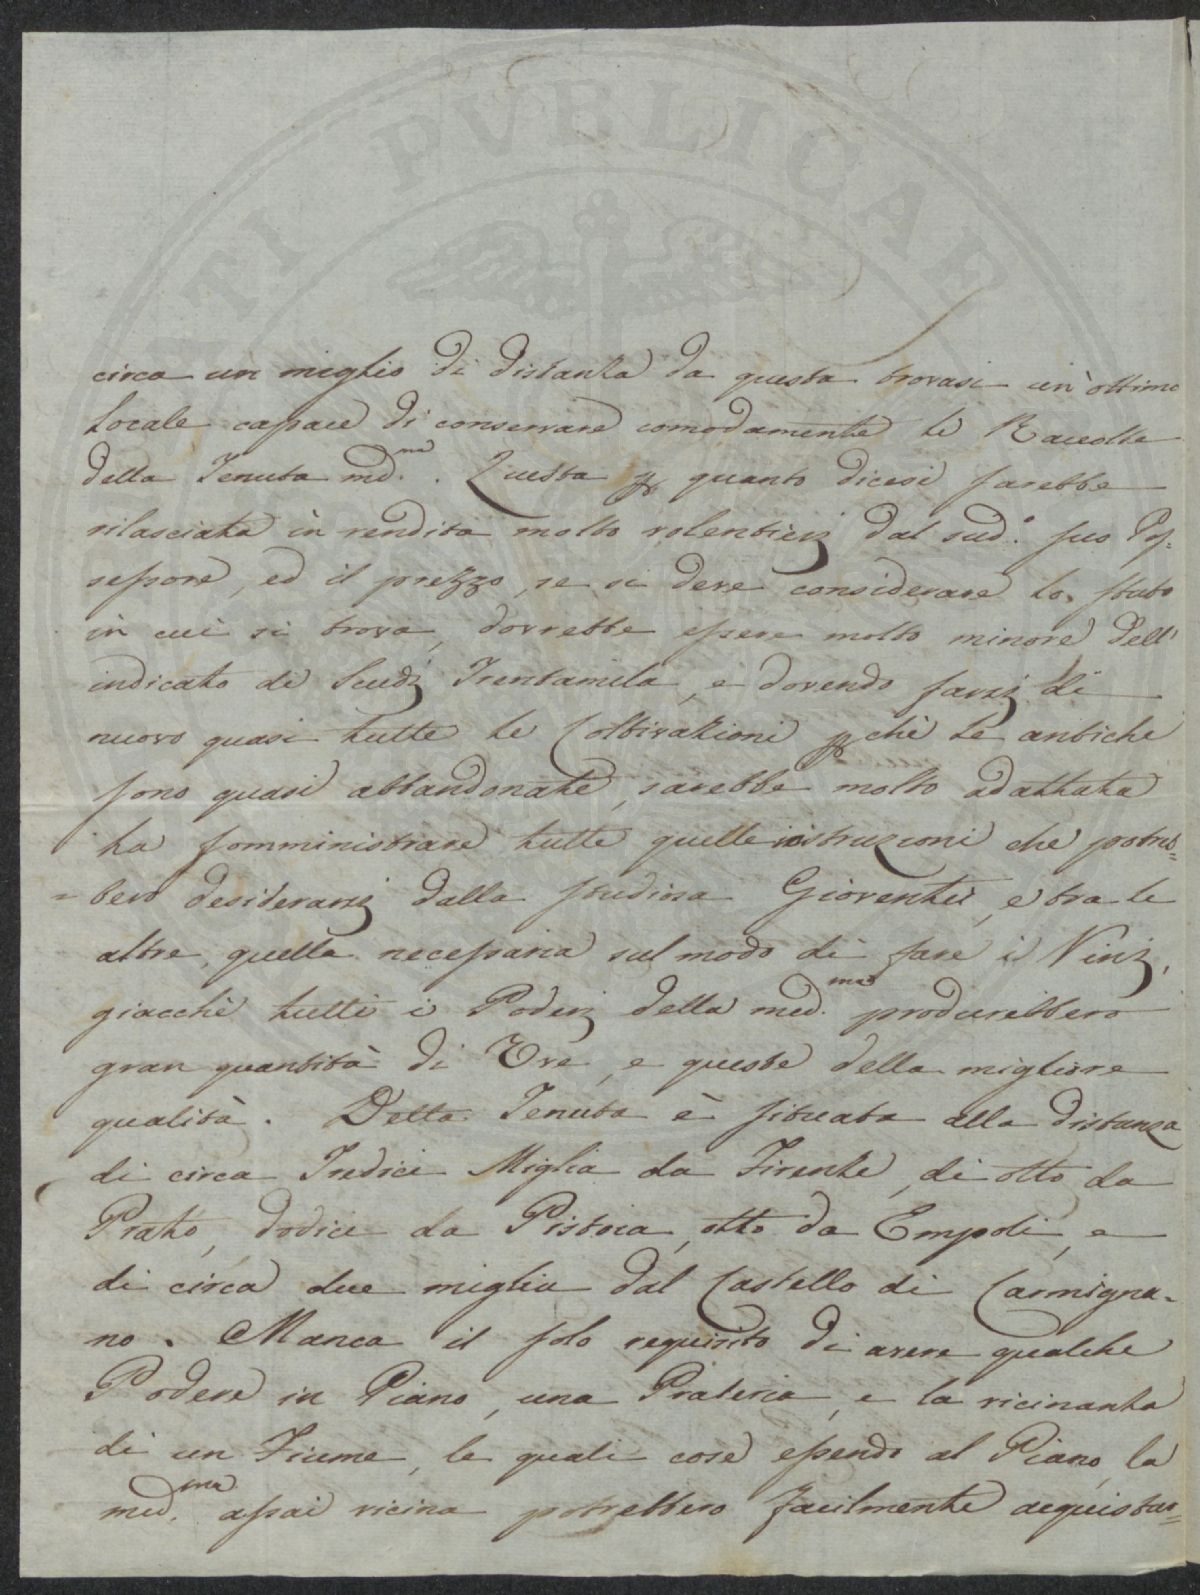 PVBLICAE
circa un miglio di distanza da questa trovasi un' ottimo
Locale capace di conservare comodamente le Raccolte
della Tenuta md.ma. Questa p quanto dicesi sarebbe
rilasciata in vendita molto volentierj dal sud.o suo Pos-
sessore, ed il prezzo, se si deve considerare lo stato
in cui si trova, dovrebbe essere molto minore dell'
indicato di Scudj Trentamila, e dovendo farsj di
nuovo quasi tutte le Coltivazioni pchè le antiche
sono quasi abbandonate, sarebbe molto adattata
ha somministrare tutte quelle instruzioni che potreb=
=bero desiderarsj dalla studiosa Gioventù, e tra le
altre, quella necessaria sul modo di fare i Vinj,
giacchè tutti i Poderj della med.ma produrebbero
gran quantità di Uve, e queste della migliore
qualità. Detta Tenuta è situata alla distanza
di circa Tredici Miglia da Firenze, di otto da
Prato, dodici da Pistoia, otto da Empoli, e
di circa due miglia dal Castello di Carmigna-
no. Manca il solo requisito di avere qualche
Podere in Piano, una Prateria, e la vicinanza
di un Fiume, le quali cose essendo al Piano la
med.ma assai vicina potrebbero facilmente acquistar=